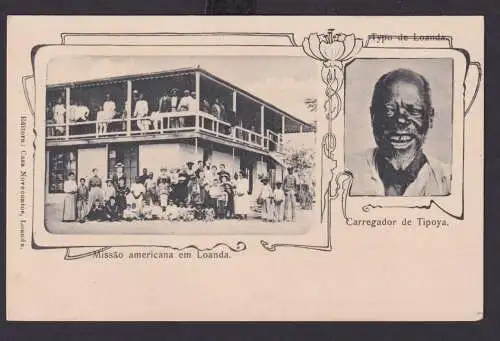 Typo de Loanda.
Editora: Casa Novecentos, Loanda.
Missão americana em Loanda.
Carregador de Tipoya.